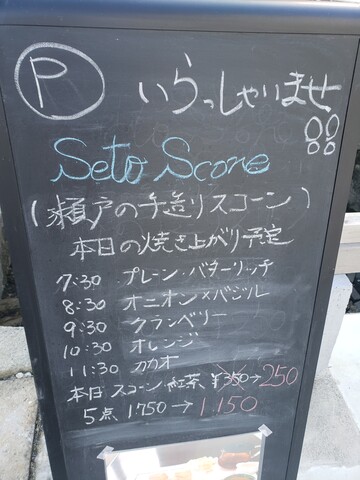 P いらっしゃいませ
Seto Scone
(瀬戸の手造りスコーン)
本日の焼き上がり予定
7:30 プレーン・バターリッチ
8:30 オニオン×バジル
9:30 クランベリー
10:30 オレンジ
11:30 カカオ
本日 スコーン・紅茶 ¥350→250
5点 1750→1150